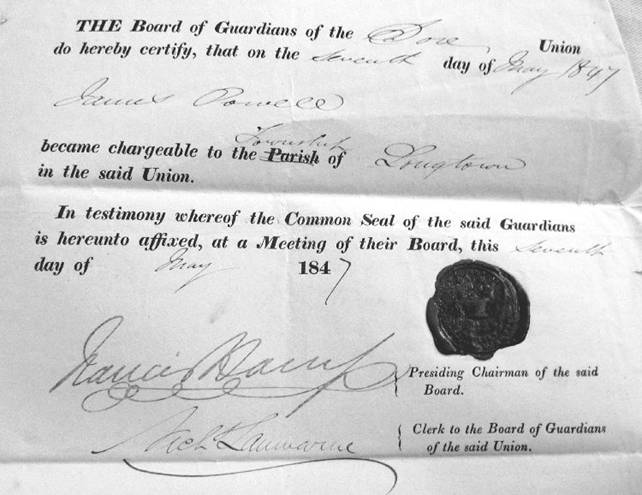 THE Board of Guardians of the Dore Union
do hereby certify, that on the seventh day of May 1847
James Powell
became chargeable to the Township Parish of Longtown
in the said Union.
In testimony whereof the Common Seal of the said Guardians
is hereunto affixed, at a Meeting of their Board, this seventh
day of May 1847
Francis
Presiding Chairman of the said
Board.
Nichs Lanwarne
Clerk to the Board of Guardians
of the said Union.